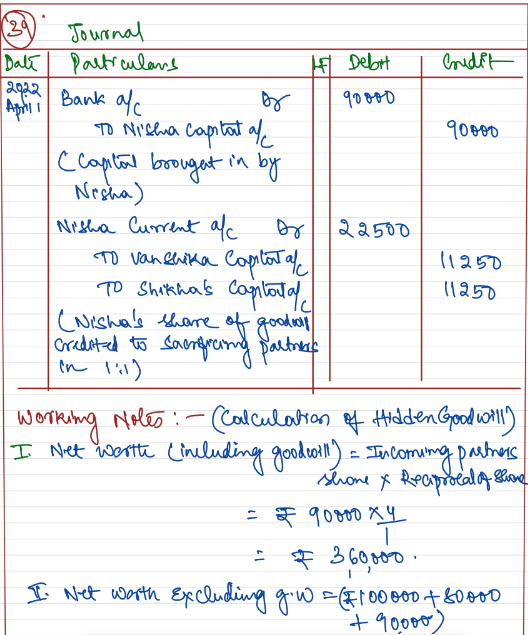 39
Journal
Date Particulars LF Debit Credit
2022
April 1 Bank a/c Dr 90000
To Nisha Capital a/c 90000
(Capital brought in by
Nisha)
Nisha Current a/c Dr 22500
To Vanshika Capital a/c 11250
To Shikha's Capital a/c 11250
(Nisha's share of goodwill
credited to sacrificing partners
in 1:1)
Working Notes :- (Calculation of Hidden Goodwill)
I. Net worth (including goodwill) = Incoming partners
share x Reciprocal of Share
= ₹ 90000 x 4/1
= ₹ 360,000.
I. Net worth excluding g.w = (₹100000 + 80000
+ 90000)